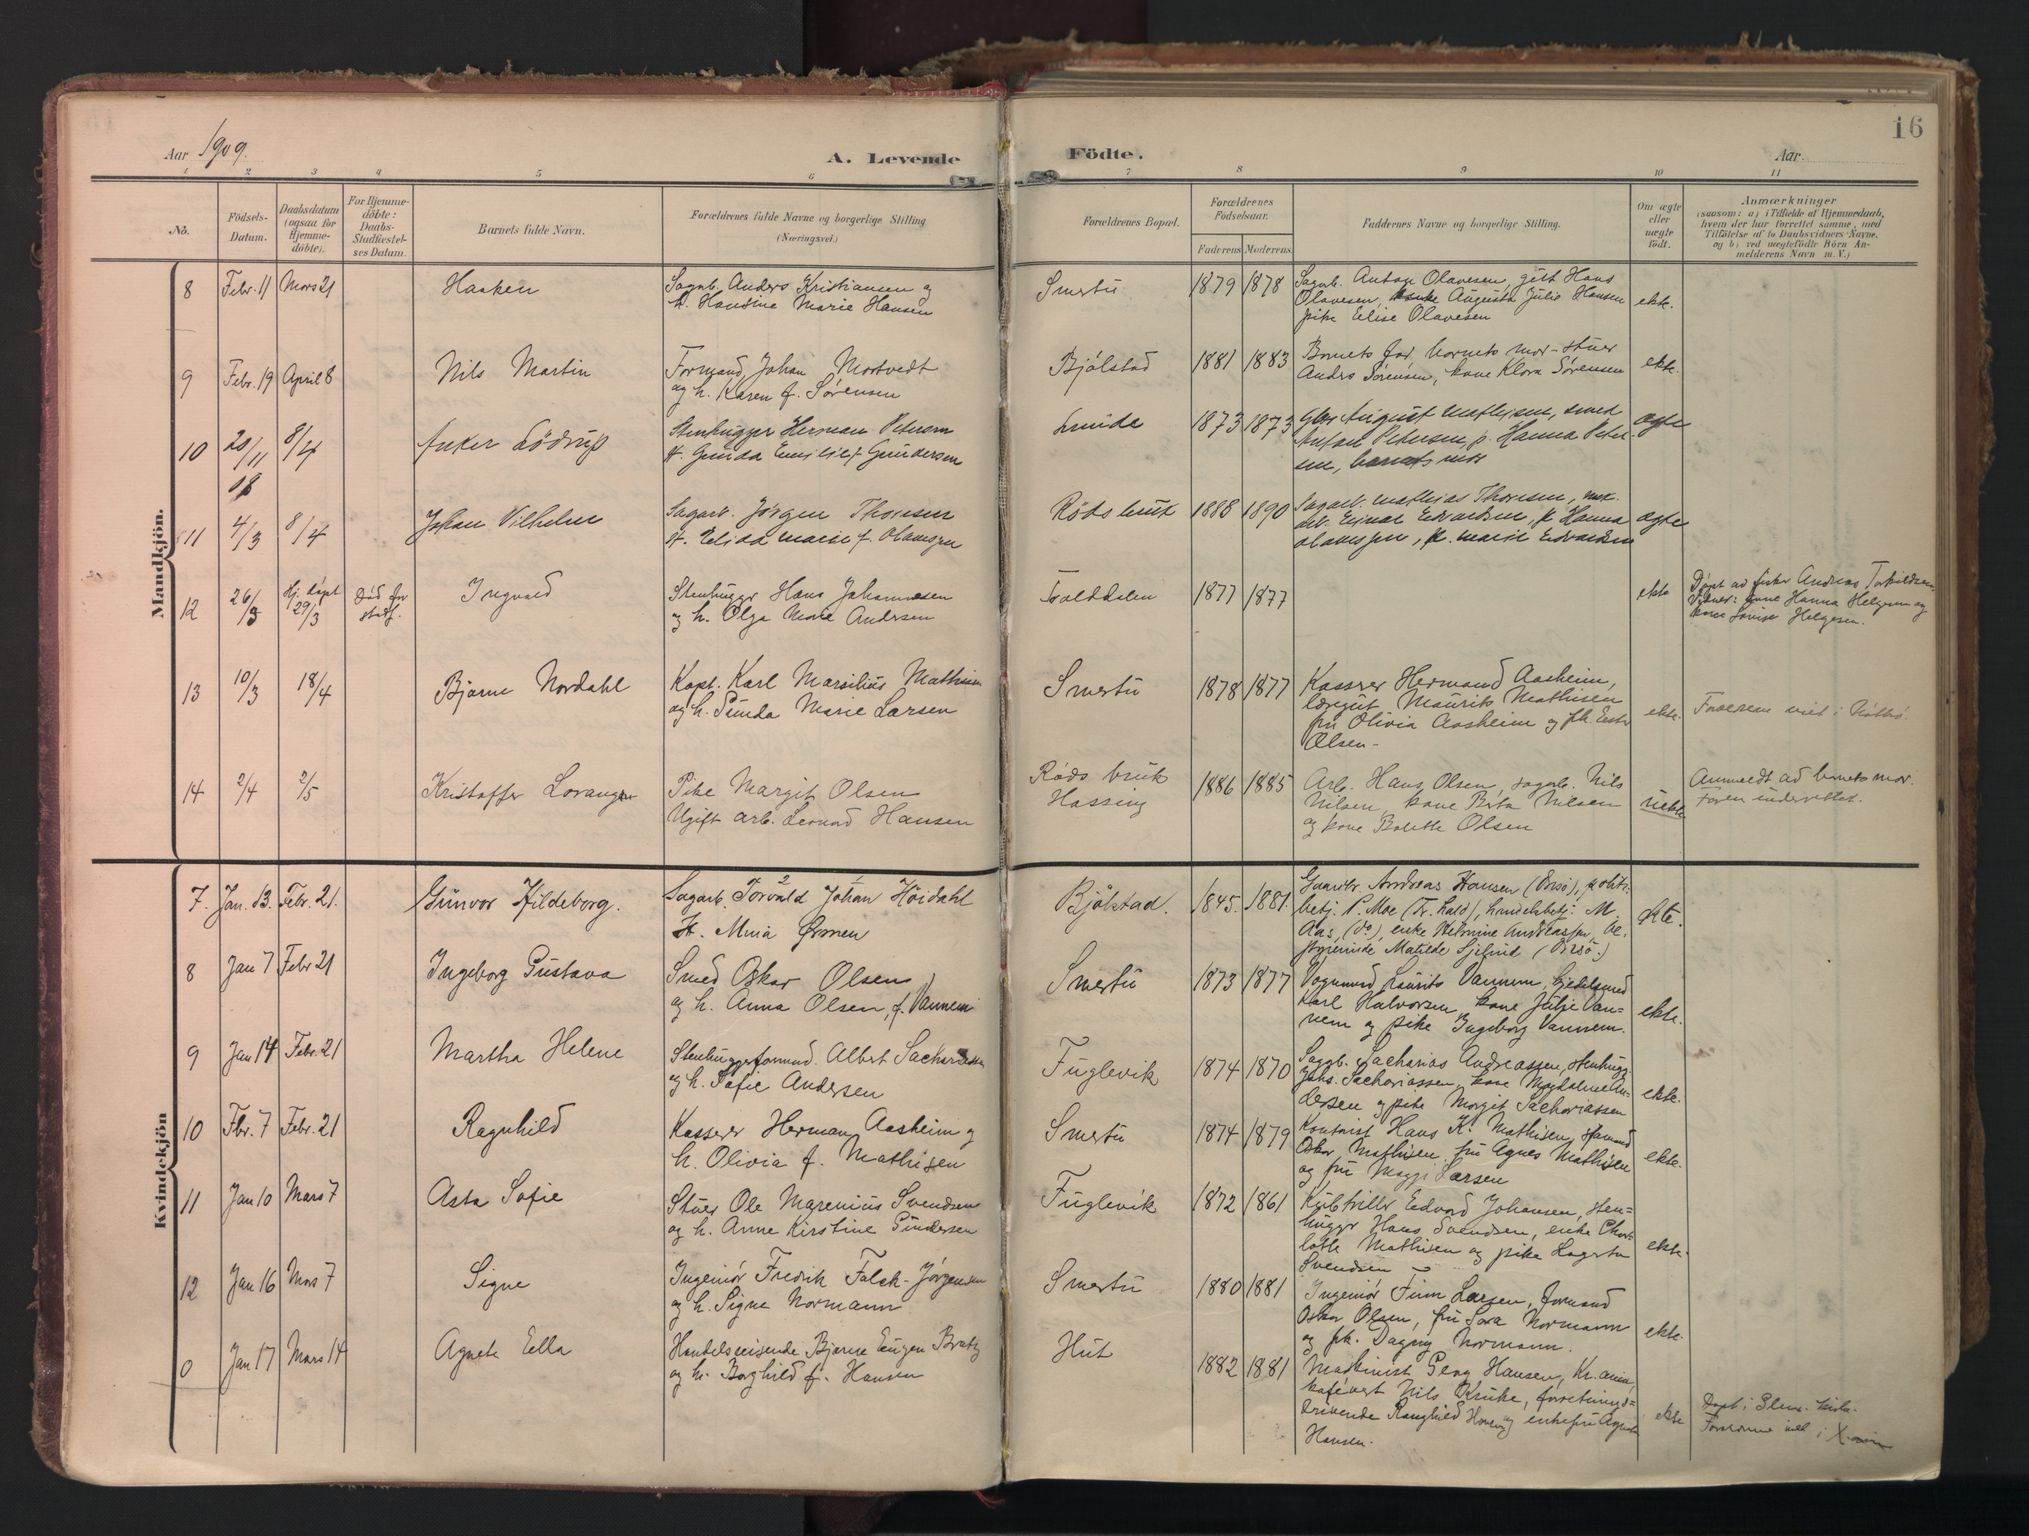 16
Aar 1909.
A. Levende
Födte.
Aar
1 2 3 4 5 6 7 8 9 10 11
Nò. Födsels-Datum. Daabsdatum (ogsaa för Hjemmedöbte). For Hjemmedöbte: Daabs-Stadfæstelses Datum. Barnets fulde Navn. Forældrenes fulde Navne og borgerlige Stilling. (Næringsvei.)
Forældrenes Bopæl. Forældrenes Födselsaar. Faderens Moderens Faddernes Navne og borgerlige Stilling. Om ægte eller uægte födt. Anmærkninger
(saasom: a) i Tilfælde af Hjemmedaab, hvem der har forrettet samme, med Tilföielse af to Daabsvidners Navne. og b) ved uægtefödte Börn Anmelderens Navn m. V.)
Mandkjön.
8 Febr. 11 Mars 21 Haaken Sagarb. Anders Kristiansen og
h. Hansine Marie Hansen
Smertu 1879 1878 Sagarb. Anton Olavesen, gift Hans
Olavesen, Augusta Julie Hansen
pike Elise Olavesen ekte.
9 Febr. 19 April 8 Nils Martin Formand Johan Mortvedt
og h. Karen f. Sørensen
Bjølstad 1881 1883 Barnets far, barnets mor - stuer
Anders Sørensen, kone Klara Sørensen ekte.
10 20/11 08 8/4 Anker Lödrup Stenhugger Herman Petersen
H. Gunda Emilie f. Gundersen
Lunde 1873 1873 August Mathisen, smed
Petersen, p. Hanna Peter-
sen, barnets mor ægte
11 4/3 8/4 Johan Vilhelm Sagarb. Jørgen Thoresen
H. Elida Marie f. Olavesen
Røds bruk 1888 1890 Sagarb. Mathias Thoresen,
Einar Edvardsen, p. Hanna
Olavessen, p. Marie Edvardsen ægte
12 26/3 Hj. døpt 29/3 Død før stadf. Ingvald Stenhugger Hans Johannesen
og h. Olga Marie Andersen
Trolddalen 1877 1877 ekte Døpt av fisker Andreas Torkildsen.
Vidner: Hanna Helgesen og
kone Lovise Helgesen.
13 10/3 18/4 Bjarne Nordahl Kapt. Karl Marsilius Mathisen
og h. Gunda Marie Larsen
Smertu 1878 1877 Kasserer Hermand Aasheim,
læregut Maurits Mathisen
fru Olivia Aasheim og pk. Ester
Olsen - ekte.
14 2/4 2/5 Kristoffer Lorang Pike Margit Olsen
Ugift arb. Leonard Hansen
Røds bruk
Hassing 1886 1885 Arb. Hans Olsen, sagarb. Nils
Nilsen, kone Berta Nilsen
og kone Bolette Olsen uekte Anmeldt av barnets mor.
Faren underrettet.
Kvindekjön
7 Jan. 13. Febr. 21. Gunvor Hildeborg. Sagarb. Torvald Johan Höidahl
H. Mina Ørmen
Bjølstad. 1845. 1881. Gaardbr. Andreas Hansen (Orsö), politi-
betj. P. Moe (Fr. hald), handelsbetj. M.
Aas (do), enke Helmine Andreassen,
Matilde (Orsö.) ekte.
8 Jan 7 Febr 21 Ingeborg Gustava Smed Oskar Olsen
og h. Anna Olsen, f. Vannem
Smertu 1873 1877 Vognmand Laurits Vannem, gjedelsmed
Karl Halvorsen kone Julje Van-
nem og pike Ingeborg Vannem. ekte.
9 Jan 14 Febr. 21 Martha Helene Stenhuggerformand. Albert Sachariassen
og h. Sofie Andersen
Fuglevik 1874 1870 Saggb. Sacharias Andreassen, stenhugg
Johs. Sachariassen, kone Magdalene An-
dersen og pike Margit Sachariassen ekte.
10 Fbr. 7 Febr. 21 Ragnhild Kasserer Herman Aasheim og
h. Olivia f. Mathisen
Smertu 1874 1879 Kontorist Hans K. Mathisen, formand
Oskar Mathisen, fru Agnes Mathisen
og fru Larsen ekte.
11 Jan 10 Mars 7 Asta Sofie Stuer Ole Marenius Svendsen
og h. Anne Kirstine Gundersen
Fuglevik 1872 1861 Edvard Johansen, sten-
hugger Hans Svendsen, enke Char-
lotte Mathisen og pike Lagerta
Svendsen ekte.
12 Jan 16 Mars 7 Signe Ingeniør Fredrik Falck-Jørgensen
og h. Signe Normann
Smertu 1880 1881 Ingeniør Finn Larsen, formand
Oskar Olsen, fru Sara Normann
og pk. Dagny Normann. ekte.
0 Jan 17 Mars 14 Agnete Ella Handelsreisende Bjarne Eugen
og h. Borghild f. Hansen
Hut 1882 1881 Maskinist Georg Hansen, Kr.ania,
kafévert Nils Kruke, forretnings-
drivende Ragnhild Hansen enkefru Agnete
Hansen. ekte Døpt i